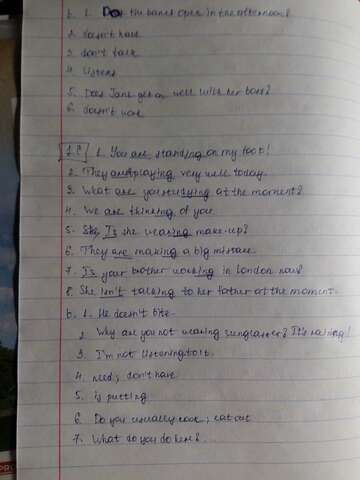 b. 1. Do the banks open in the afternoon?
2. doesn't have
3. don't talk
4. Listens
5. Does Jane get on well with her boss?
6. doesn't work
1. You are standing on my foot!
2. They are playing very well today.
3. What are you studying at the moment?
4. We are thinking of you
5. Is she wearing make-up?
6. They are making a big mistake
7. Is your brother working in London now?
8. She isn't talking to her father at the moment.
b. 1. He doesn't bite
2. Why are you not wearing sunglasses? It's raining!
3. I'm not listening to it.
4. need; don't have
5. is putting
6. Do you usually cook; eat out
7. What do you do here?